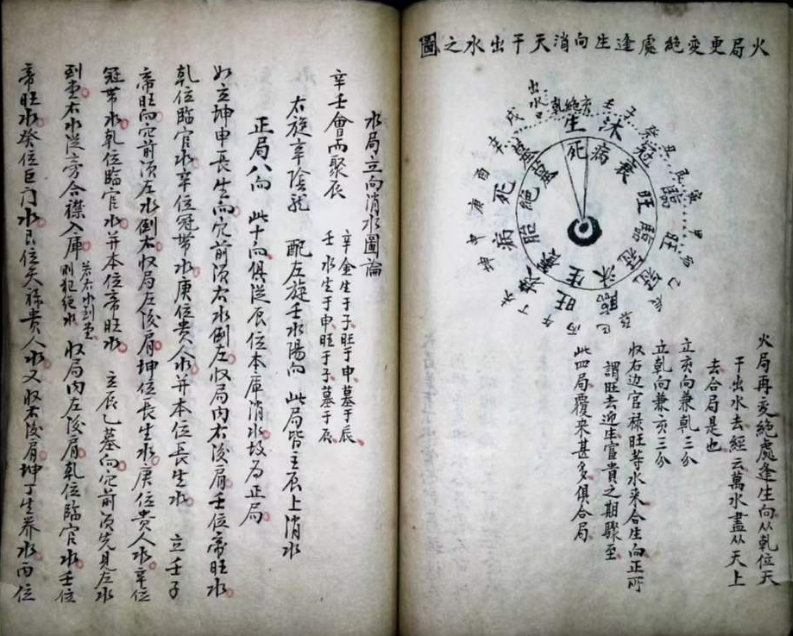 火局更変絕處逢生向消天干出水之圖
出水口
乾 絕 亥 壬 子 癸 丑 艮 寅 甲
戌 辛 酉 庚 申 坤 未 丁 午 丙 巳
生 沐 冠 臨 旺
死 病 衰 旺 臨 冠 沐 生 養 胎 絕 墓
火局再変絕處逢生向从乾位天
干出水去經云萬水盡从天上
去合局是也
立亥向兼乾三分
立乾向兼亥三分
收右边官禄旺等水來合生向正所
謂旺去迎生富貴之期驟至
此四局覆來甚多俱合局
水局立向消水圖論
辛壬會而聚辰
辛金生于子旺于申墓于辰
壬水生于申旺于子墓于辰
右旋辛陰龍 配左旋壬水陽向 此局皆主辰上消水
正局八向 此十向俱从辰位本庫消水故为正局
如立坤申長生向穴前須右水倒左收局內右後肩壬位帝旺水
乾位臨官水辛位冠帶水庚位貴人水并本位長生水 立壬子
帝旺向穴前須左水倒右收局左後肩坤位長生水庚位貴人水辛位
冠帶水乾位臨官水并本位帝旺水 立辰乙墓向穴前須先見左水
到堂右水從旁合襟入庫
若右水到堂
則犯絕水
收局內左後肩乾位臨官水壬位
帝旺水癸位巨门水艮位天祿貴人水又收右後肩坤丁生养水丙位